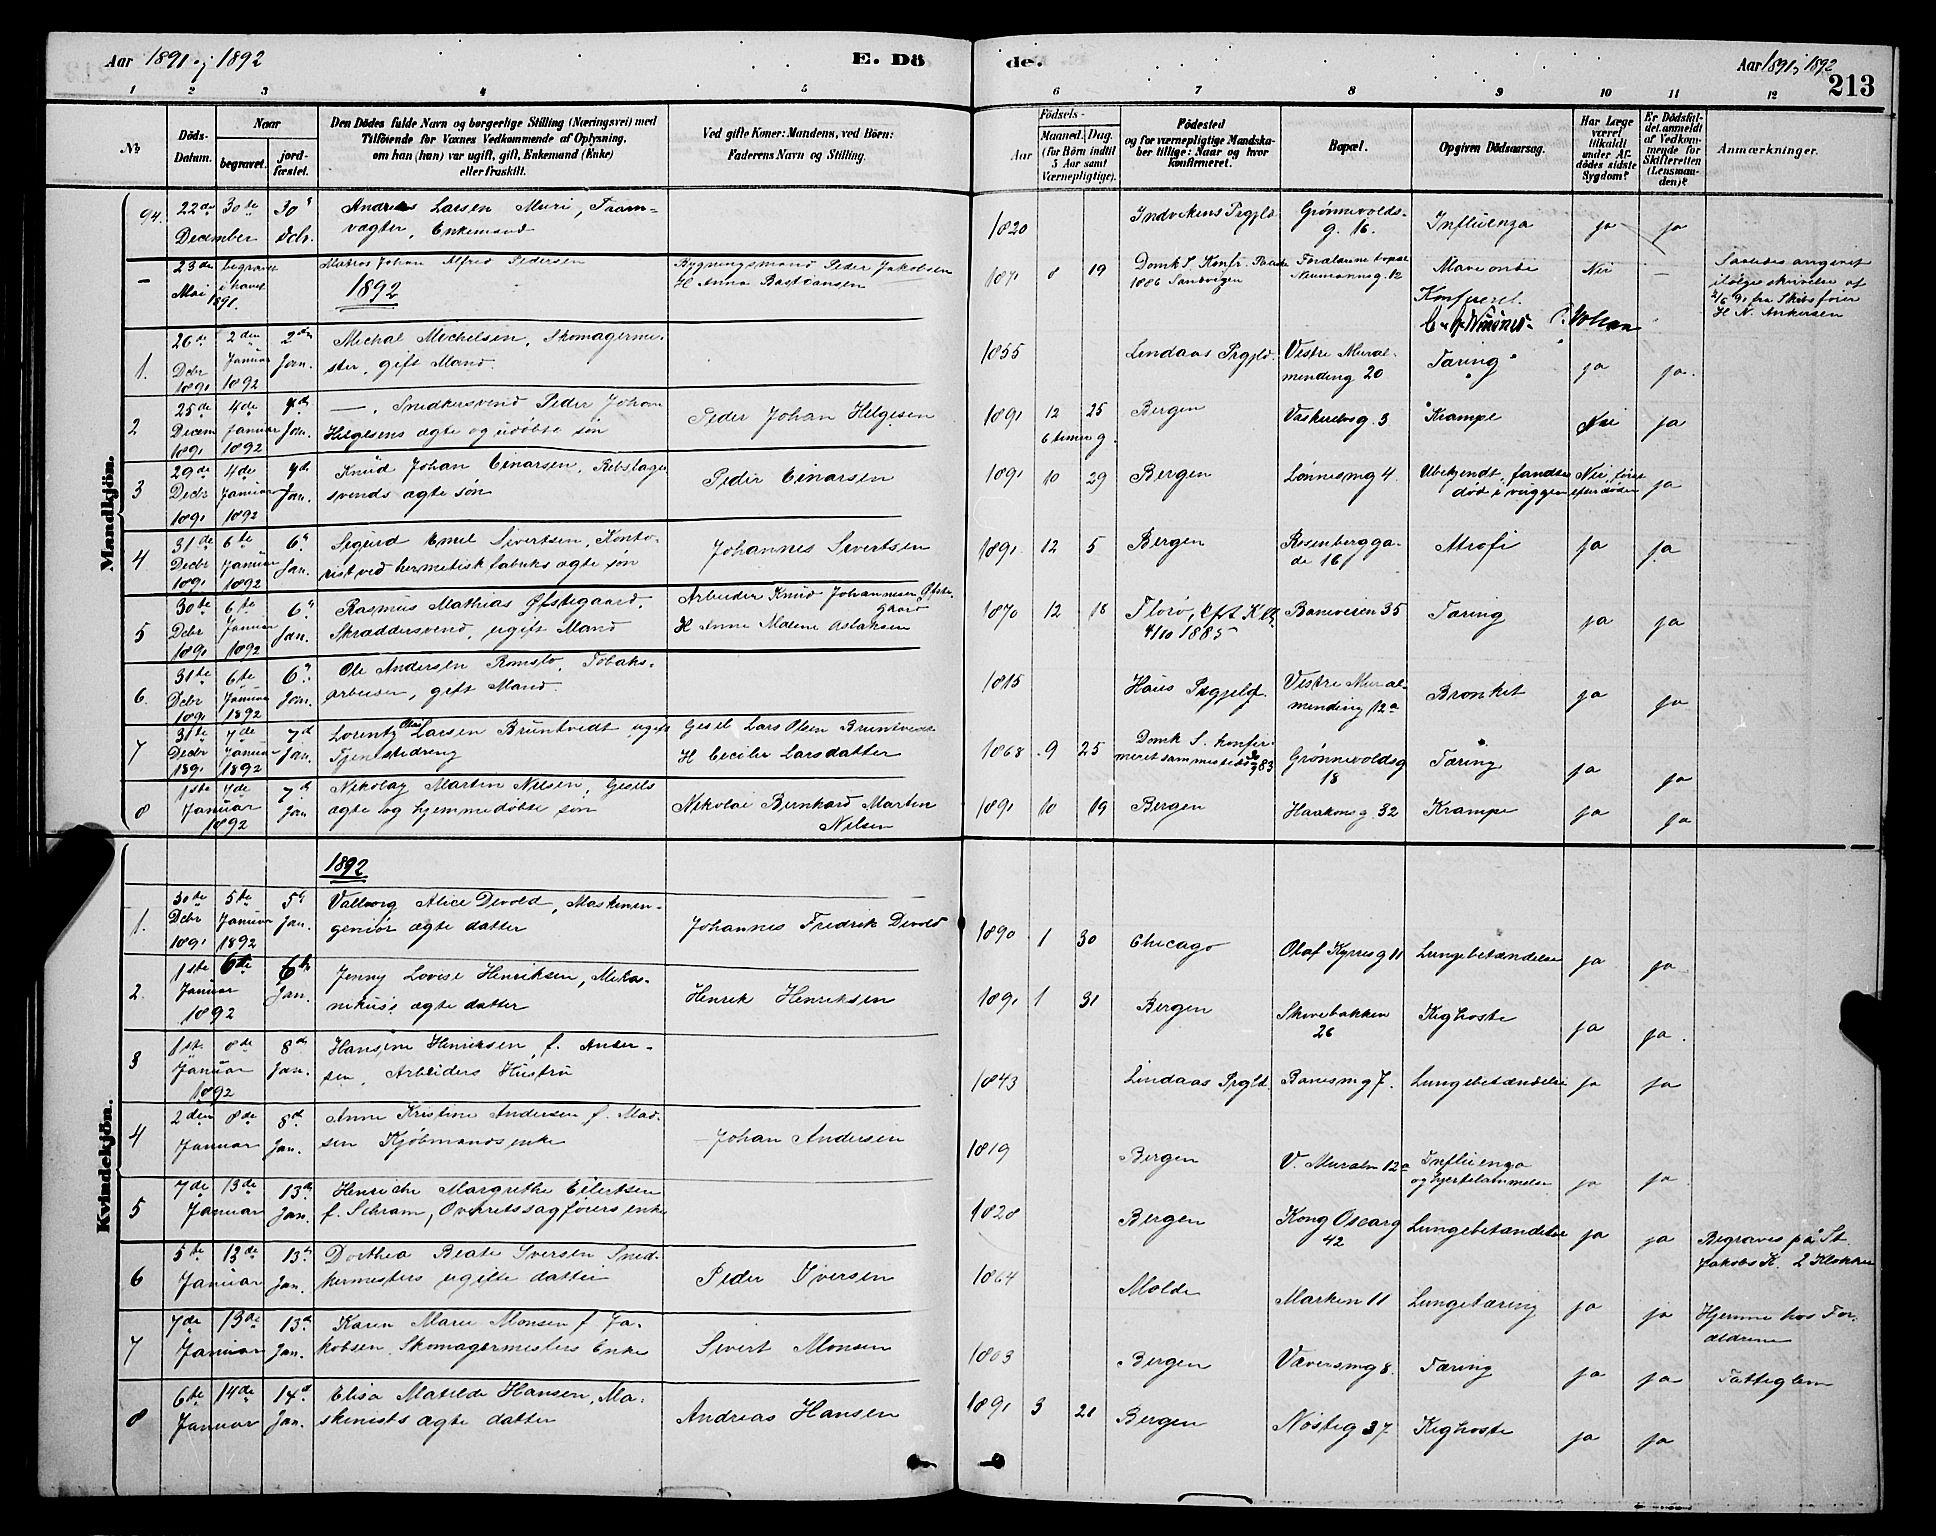 Aar 1891 og 1892 E. Dö de. Aar 1891 og 1892
213
1 2 3 4 5 6 7 8 9 10 11 12
No.
Döds-Datum.
Naar
begravet.
jord-fæstet.
Den Dödes fulde Navn og borgerlige Stilling (Næringsvei) med
Tilföiende for Voxnes Vedkommende af Oplysning,
om han (hun) var ugift, gift, Enkemand (Enke)
eller fraskilt.
Ved gifte Koner: Mandens, ved Börn:
Faderens Navn og Stilling.
Födsels-
Aar
Maaned. Dag.
(for Börn indtil
5 Aar samt
Værnepligtige).
Födested
og for værnepligtige Mandska-
ber tillige: Naar og hvor
konfirmeret.
Bopæl.
Opgiven Dödsaarsag.
Har Læge
været
tilkaldt
under Af-
dödes sidste
Sygdom?
Er Dödsfal-
det anmeldt
af Vedkom-
mende for
Skifteretten
(Lensman-
den)?
Anmærkninger.
Mandkjön.
94. 22de December 30te 30te Dcbr. Andreas Larsen Muri, Taarn-
vægter, Enkemand 1820 Indvikens Prgjld. Grønnevolds-
g. 16. Influenza ja ja
— 23de Mai 1891. begravet i havet Matros Johan Alfred Pedersen Bygningsmand Peder Jakobsen
H Anna Bastiansen 1871 8 19 Domk S. Konfr.
1886 Sandvigen Forældrene bopæl
Neumannsg. 12 Maveonde Nei — Saaledes angivet
ifølge skrivelse af
2/6 91 fra Skibsfører
H N. Ankersen
1892
Konfereret.
1. 26de Dcbr 1891 2den Januar 1892 2den Jan. Michal Michelsen, Skomagerme-
ster, gift Mand. 1855 Lindaas Prgjld. Vestre Mural-
mending 20 Tæring ja ja.
2 25de Decem 1891 4de Januar 1892 4de Jan. —, Snedkersvend Peder Johan
Helgesens ægte og udøbte søn Peder Johan Helgesen 1891 12 25
6 timer g. Bergen Vaskerelvsg. 3 Krampe Nei ja
3 29de Decbr 1891 4de Januar 1892 4de Jan. Knud Johan Einarsen, Rebslager
svends ægte søn Peder Einarsen 1891 10 29 Bergen Lønnesmg 4. Ubekjendt, fandtes
død i vuggen Nei, først
efter døden ja
4 31de Decbr 1891 6te Januar 1892 6te Jan. Sigurd Emil Sivertsen, Konto-
rist ved hermetisk fabriks ægte søn Johannes Sivertsen 1891. 12 5 Bergen Rosenbergga-
de 16 Atrofi ja ja
5 30te Dcbr 1891 6te Januar 1892 6te Jan. Rasmus Mathias Øfstegaard,
Skræddersvend, ugift Mand Arbeider Knud Johannesen Øfste-
gaard
H Anne Malene Aslaksen 1870 12 18 Florø,
4/10 1885 Baneveien 35 Tæring ja ja
6. 31te Dcbr 1891 6te Januar 1892 6te Jan. Ole Andersen Romslo, Tobaks-
arbeider, gift Mand. 1815 Haus Prgjeld. Vestre Mural-
mending 12a Bronkit ja ja
7 31te Decbr 1891 7de Januar 1892 7d Jan. Lorentz Olai Larsen Bruntvedt ugift
Tjenstedreng Gesel Lars Olsen Bruntvedt
H Cecilie Larsdatter 1868 9 25 Domk S. konfir-
meret sammesteds 83 Grønnevoldsg
18 Tæring ja ja
8 1ste Januar 1892 7de 7d Jan Nikolay Martin Nilsen, Gesels
ægte og hjemmedøbte søn Nikolai Bernhard Martin
Nilsen 1891 10 19 Bergen Haakonsg. 32 Krampe ja ja
Kvindekjön.
1892
1. 30te Dcbr 1891 5te Januar 1892 5te Jan. Valborg Alice Devold, Maskinin-
geniør ægte datter Johannes Fredrik Devold 1890 1 30 Chicago Olaf Kyrresg 11 Lungebetændelse ja ja
2. 1ste Januar 1892 6te 6te Jan. Jenny Lovise Henriksen, Meka-
nikus's ægte datter Henrik Henriksen 1891 1 31 Bergen Skivebakken
26 Kighoste ja ja.
3 1ste Januar 1892 8de 8de Jan. Hansine Henriksen, f. Ander-
sen, Arbeiders Hustru 1843 Lindaas Prgld. Banesmg 7. Lungebetændelse ja ja
4 2den Januar 8de 8d Jan. Anne Kristine Andersen f. Mad-
sen Kjøbmands enke Johan Andersen 1819 Bergen V. Muralm 12a Influenza
og hjertelammelse ja ja
5 7de Januar 13de 13de Jan. Henriche Margrethe Eilertsen
f. Schram, Overretssagførers enke 1828 Bergen Kong Oscarsg
42 Lungebetændelse ja ja Begraves på St.
Jakobs K. 2 Klokker
6 5te Januar 13de 13de Jan. Dorthea Beate Iversen Sned-
kermesters ugifte datter Peder Iversen 1864 Molde Marken 11 Lungetæring ja ja Hjemme hos For-
ældrene
7 7de Januar 13de 13de Jan. Karen Marie Monsen f Ja-
kobsen, Skomagermesters Enke Sivert Monsen 1803 Bergen Væversmg 8. Tæring ja ja Fattiglem
8 6te Januar 14de 14d Jan. Elisa Matilde Hansen, Ma-
skinists ægte datter Andreas Hansen 1891 3 21 Bergen Nøsteg 37 Kighoste ja ja